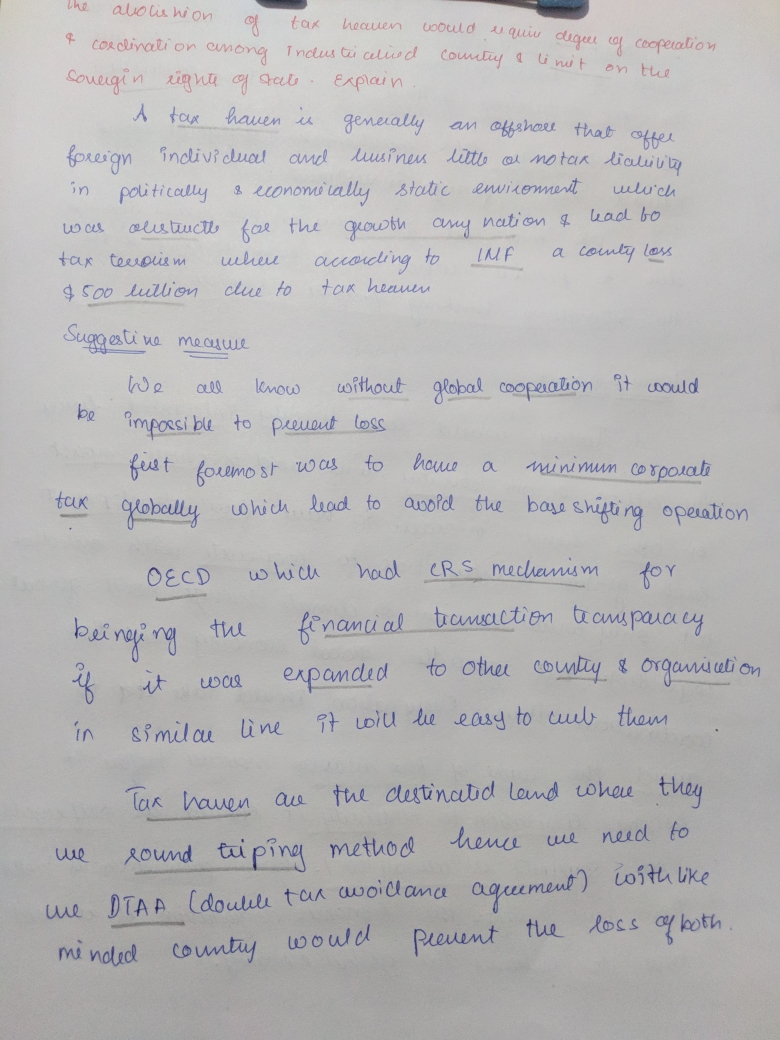 The abolishion of tax heaven would require degree of cooperation
& cordination among Industrialised country & limit on the
Soveigin rights of state. Explain.
A tax haven is generally an offshore that offer
foreign individual and business little or no tax liability
in politically & economically static environment which
was obstructle for the growth any nation & lead to
tax terrorism where according to IMF a county loss
$ 500 billion due to tax heaven
Suggestive measure
We all know without global cooperation it would
be impossible to prevent loss
first foremost was to have a minimum corporate
tax globally which lead to avoid the base shifting operation
OECD which had CRS mechanism for
beinging the financial transaction transparacy
if it was expanded to other country & organisation
in similar line it will be easy to curb them
Tax haven are the destinated land where they
use round triping method hence we need to
use DTAA (double tax avoidance agreement) with like
minded country would prevent the loss of both.